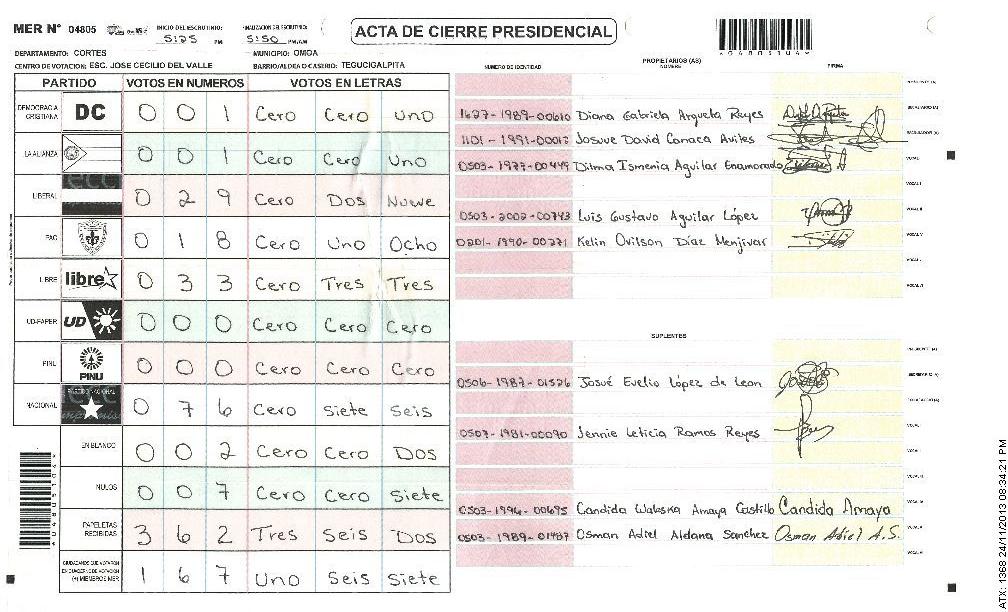 MER Nº 04805 INICIO DEL ESCRUTINIO: 5:25 PM FINALIZACION DEL ESCRUTINIO: 5:50 PM/AM
ACTA DE CIERRE PRESIDENCIAL
DEPARTAMENTO: CORTES MUNICIPIO: OMOA
CENTRO DE VOTACION: ESC. JOSE CECILIO DEL VALLE BARRIO/ALDEA O CASERIO: TEGUCIGALPITA
PARTIDO VOTOS EN NUMEROS VOTOS EN LETRAS
DEMOCRACIA CRISTIANA DC 0 0 1 Cero Cero Uno
LA ALIANZA 0 0 1 Cero Cero Uno
LIBERAL 0 2 9 Cero Dos Nueve
PAC 0 1 8 Cero Uno Ocho
LIBRE libre 0 3 3 Cero Tres Tres
UD-FAPER UD 0 0 0 Cero Cero Cero
PINU PINU 0 0 0 Cero Cero Cero
NACIONAL 0 7 6 Cero Siete Seis
EN BLANCO 0 0 2 Cero Cero Dos
NULOS 0 0 7 Cero Cero Siete
PAPELETAS RECIBIDAS 3 6 2 Tres Seis Dos
CIUDADANOS QUE VOTARON EN CUADERNO DE VOTACION (+) MIEMBROS MER 1 6 7 Uno Seis Siete
PROPIETARIOS (AS)
NUMERO DE IDENTIDAD NOMBRE FIRMA
1627-1989-00610 Diana Gabriela Argueta Reyes
Josue David Canaca Aviles
0503-1977-00449 Dilma Ismenia Aguilar Enamorado
0503-2002-00743 Luis Gustavo Aguilar López
0201-1990-00271 Kelin Ovilson Díaz Menjivar
SUPLENTES
0506-1987-01526 Josué Evelio López de Leon
0507-1981-00090 Jennie Leticia Ramos Reyes
0503-1996-00695 Candida Waleska Amaya Castillo Candida Amaya
0503-1989-01487 Osman Adiel Aldana Sanchez Osman Adiel A.S.
ATX: 1368 24/11/2013 08:34:21 PM